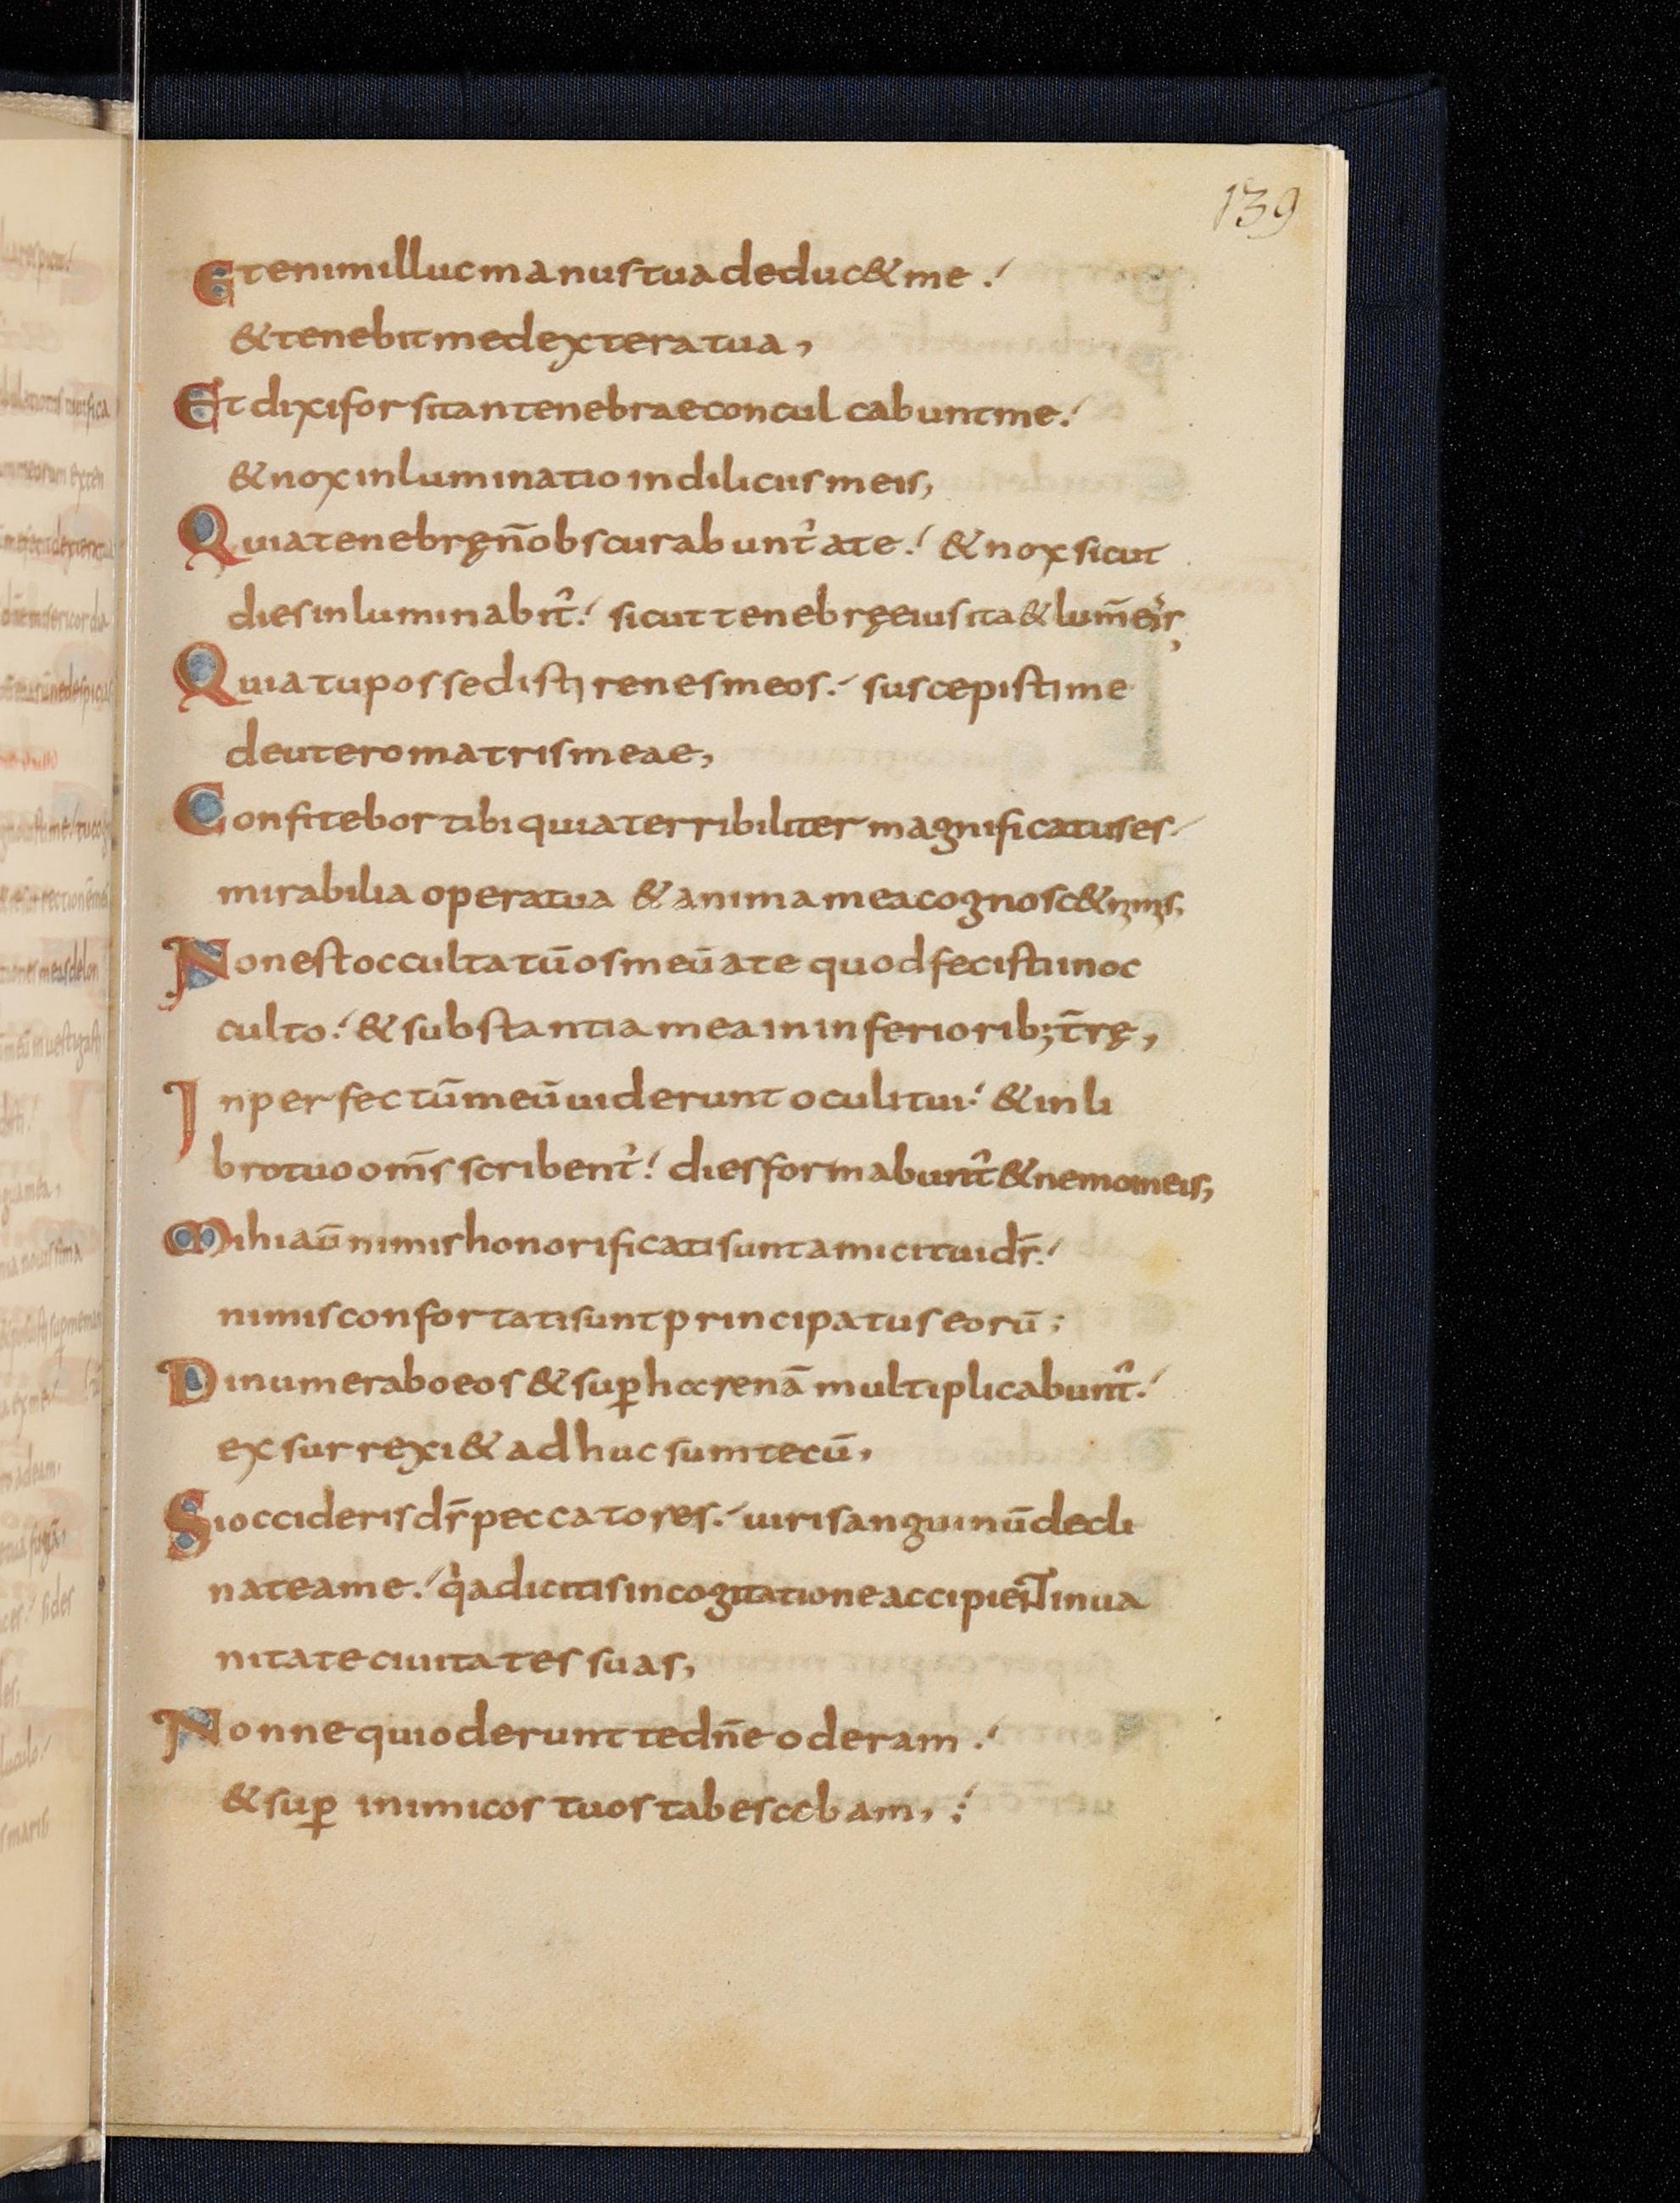 139
Etenim illuc manus tua deduc& me.
& tenebit me dextera tua,
Et dixi forsitan tenebrae conculcabunt me.
& nox inluminatio in diliciis meis,
Quia tenebrę n̄ obscurabunt᷑ a te. & nox sicut
dies inluminabit᷑. sicut tenebrę eius ita & lum̄ ei᷒,
Quia tu possedisti renes meos. suscepisti me
de utero matris meae,
Confitebor tibi quia terribiliter magnificatus es
mirabilia opera tua & anima mea cognosc& nimis,
Non est occultatū os meū a te quod fecisti in oc
culto. & substantia mea in inferiorib; t̄rę,
Inperfectū meū uiderunt oculi tui. & in li
bro tuo om̄s scribent᷑. dies formabunt᷑ & nemo in eis,
Mihi aū nimis honorificati sunt amici tui d̄s.
nimis confortati sunt principatus eorū;
Dinumerabo eos & suꝑ harenā multiplicabunt᷑.
exsurrexi & adhuc sum tecū,
Si occideris d̄s peccatores. uiri sanguinū decli
nate a me. q̇a dicitis in cogitatione accipient in ua
nitate ciuitates suas,
Nonne qui oderunt te dn̄e oderam.
& suꝑ inimicos tuos tabescebam,;